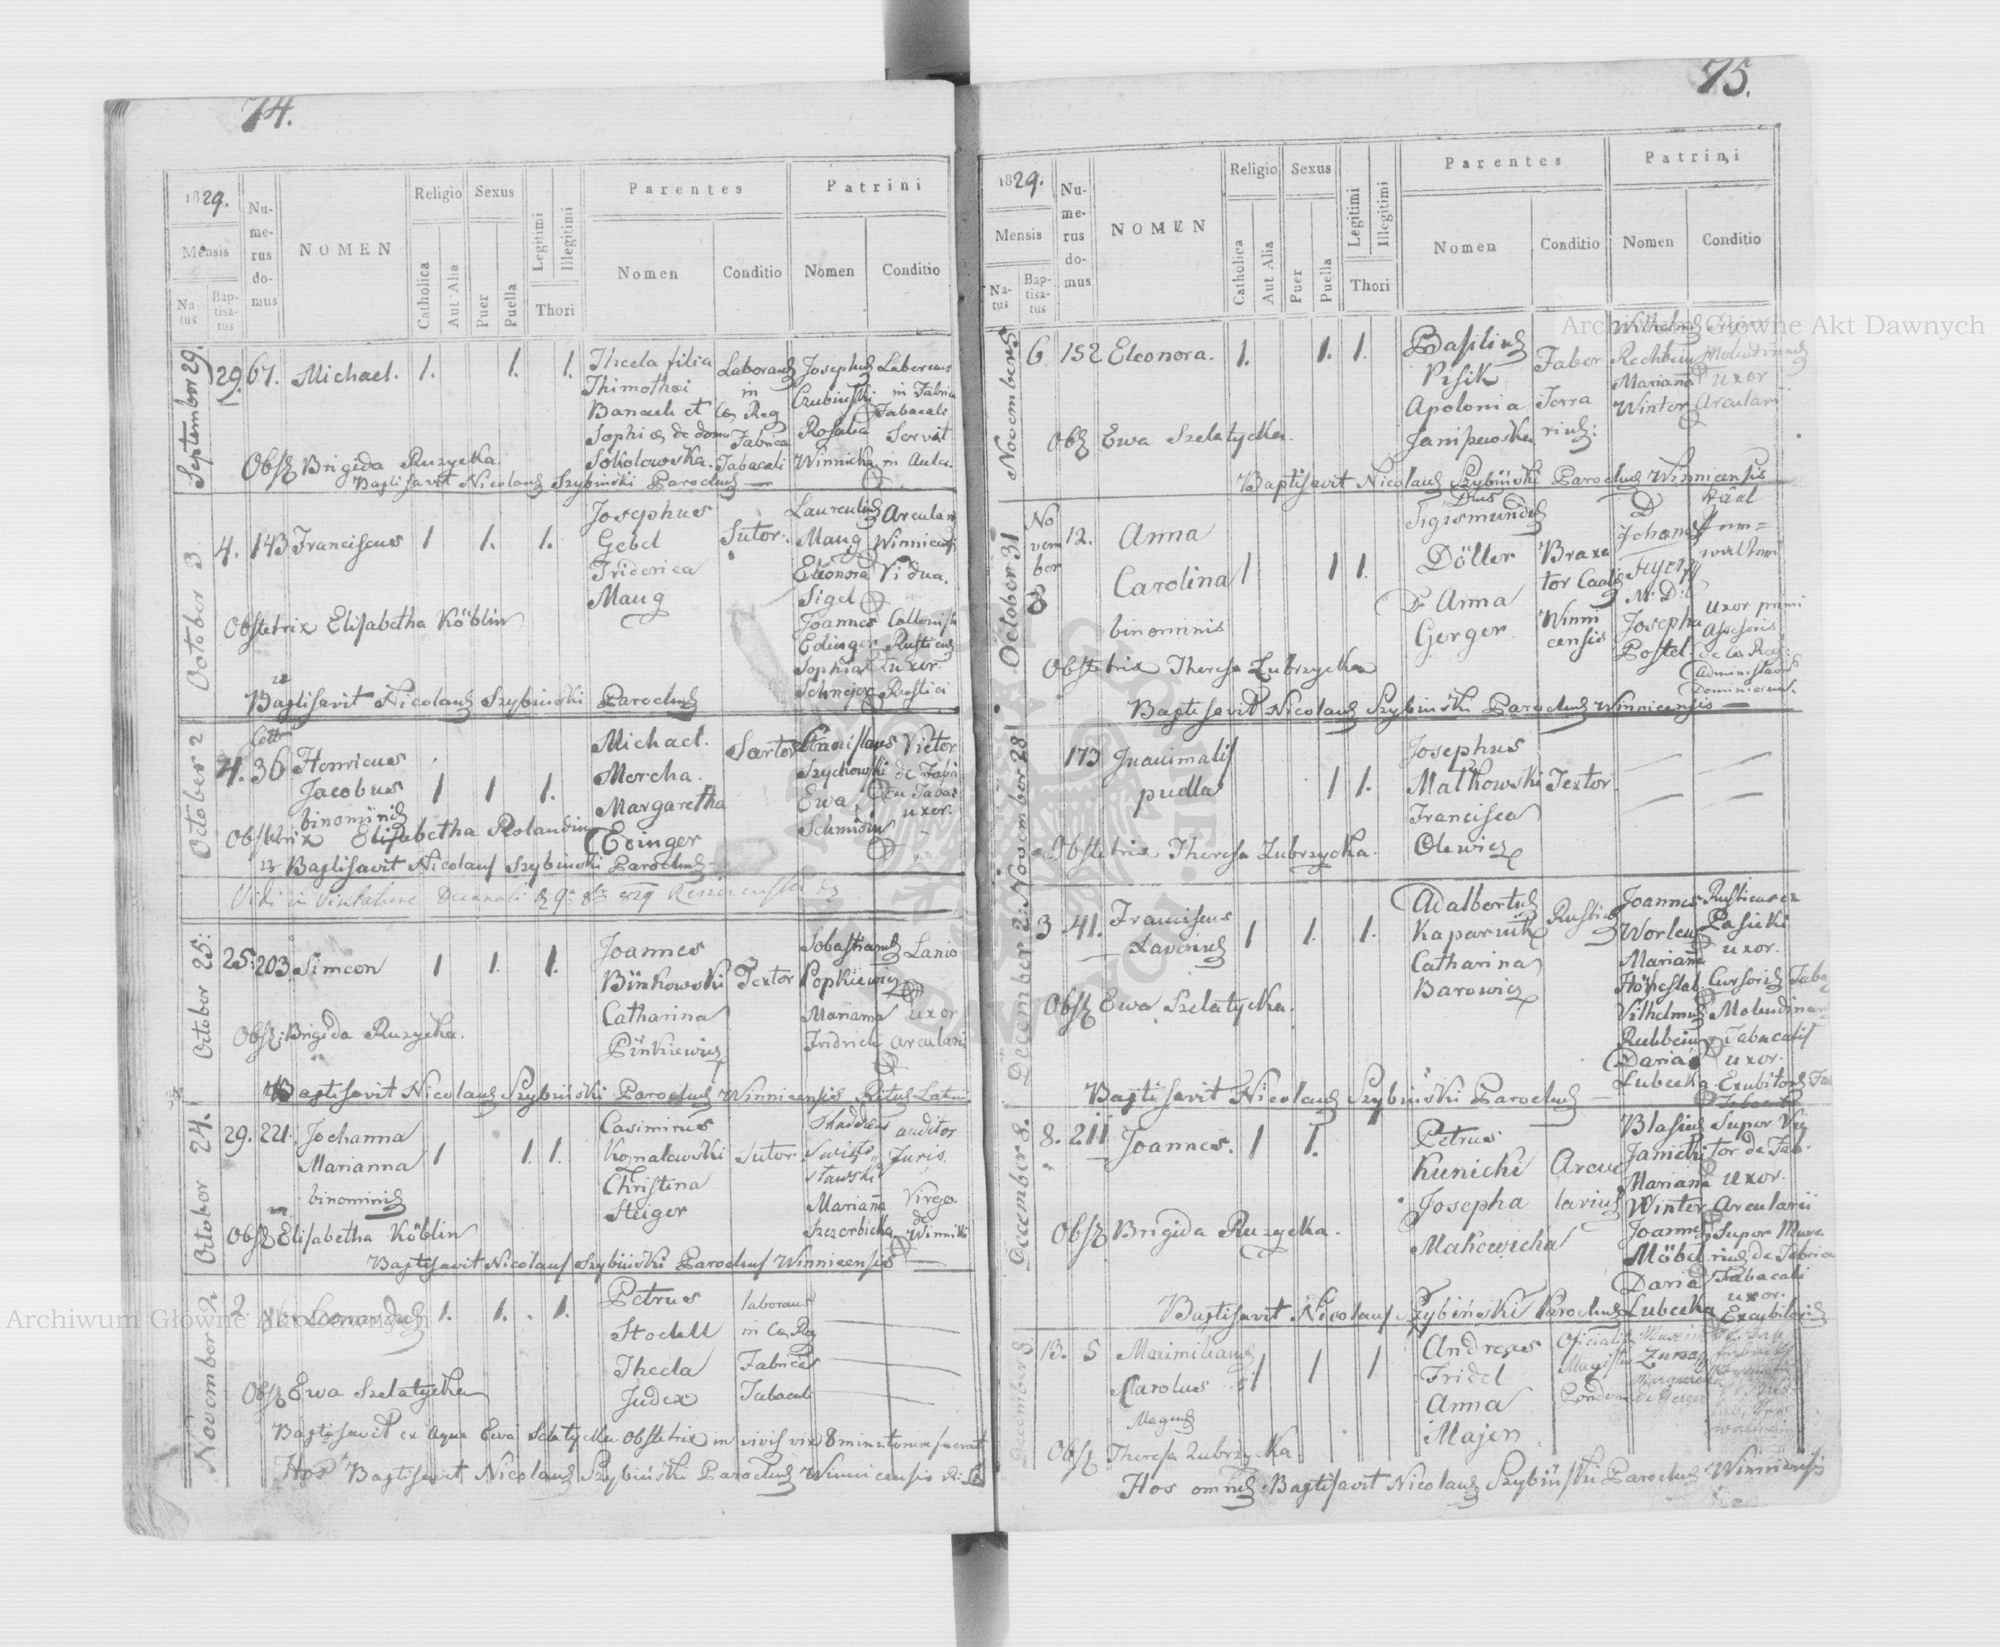 74.
1829.
Numerus domus
NOMEN
Religio
Sexus
Legitimi
Illegitimi
Parentes
Patrini
Mensis
Natus
Baptisatus
Catholica
Aut Alia
Puer
Puella
Thori
Nomen
Conditio
Nomen
Conditio
September 29.
29. 67. Michael. 1. 1. 1. Thecla filia Laborans Josephus Laborans
Thimothei in Czubinski in Fabrica
Banach et Cae Reg Tabacali
Sophiae de domo Fabrica Rosalia Servit
Sokolowska. Tabacali Winnicka in Aula.
Obst Brigida Ruzycka.
Baptisavit Nicolaus Szybinski Parochus
October 3
4. 143 Franciscus 1 1. 1. Josephus Sutor. Laurentius Arcular
Gebel Maug Winnicens
Friderica Eleonora Vidua.
Maug Sigel
Obstetrix Elisabetha Köblin Joannes Collonista
Edinger Rusticus
Sophia uxor.
Schnejer Rustici
Baptisavit Nicolaus Szybinski Parochus
October 2
4. 36 Henricus Jacobus binominis 1 1 1. Michael. Sartor Stanislaus Victor
Mercha. Szychowski de Fabri
Margaretha Ewa Tabac
Edinger Schmidin uxor.
Obstetrix Elisabetha Rolandin
Baptisavit Nicolaus Szybinski Parochus
October 25:
25. 203 Simeon 1 1. 1. Joannes Textor Sebastianus Lanio
Binkowski Popkiewicz
Catharina Marianna uxor
Pinkiewicz Fridrich Arcularii
Obst: Brigida Ruzycka.
Baptisavit Nicolaus Szybinski Parochus Winnicensis Ritus Latini
October 24.
29. 221. Johanna Marianna binominis 1 1. 1. Casimirus Sutor Thaddeus auditor
Komalewski Swięto Juris.
Christina sławski
Steiger Marianna Virgo
Szczerbicka de Winniki
Obst Elisabetha Köblin
Baptisavit Nicolaus Szybinski Parochus Winnicensis
November 2
2. Leonardus 1. 1. 1. Petrus laborans
Stockll in Cae Reg
Thecla Fabrica
Judex Tabacali
Obst Ewa Szelatycka
Baptisavit ex Aqua Ewa Selatycka Obstetrix in vivis vix 8 minutorum fuerat
Hos Baptisavit Nicolaus Szybinski Parochus Winnicensis
75.
1829.
Numerus domus
NOMEN
Religio
Sexus
Legitimi
Illegitimi
Parentes
Patrini
Mensis
Natus
Baptisatus
Catholica
Aut Alia
Puer
Puella
Thori
Nomen
Conditio
Nomen
Conditio
November 5
6 152 Eleonora. 1. 1. 1. Basilius Faber Wilhelmus
Pisik Ferra Rechbein Molendinus
Apolonia rius: Marianna uxor
Janiszewska Winter Arcularii
Obst Ewa Szelatycka.
Baptisavit Nicolaus Szybinski Parochus Winnicensis
October 31
November 8
12. Anna Carolina binominis 1 1 1. Dnus Sigismundus D
Döller Braxator Johanes
Dna Anna Winnicensis Josepha uxor primi
Gerger Postel Assessoris
Administratoris
Dominiorum.
Obstetrix Theresa Zubrzycka
Baptisavit Nicolaus Szybinski Parochus Winnicensis
November 28
173 Innominalis puella 1 1. Josephus Textor
Malkowski
Francisca
Olewicz
Obstetrix Theresa Zubrzycka.
December 2.
3 41. Franciscus Xaverius 1 1. 1. Adalbertus Rusticus Joannes Rusticus ex
Kaparnik Worlen Pasieki
Catharina Marianna uxor.
Barowicz Höpestal Cursoris Tabac
Vilhelmus Molendinar
Rechbein Tabacalis
Daria uxor.
Lubecka Excubitoris
Obst Ewa Szelatycka.
Baptisavit Nicolaus Szybinski Parochus
December 8.
8. 211 Joannes. 1 1. Petrus Arcularius Blasius Super Vig
Kunicki Janicki tor de Fab.
Josepha Marianna uxor.
Makowicka Winter Arcularii
Joannes Super Mura
Möbel rius de Fabrica
Daria Tabacali
Lubecka uxor. Excubitoris
Obst Brigida Ruzycka.
Baptisavit Nicolaus Szybinski Parochus
December 8.
13. 5 Maximilianus Carolus Magnus 1 1 1 Andreas Oficialis
Fridel Magister
Anna
Majen
Obst Theresa Zubrzycka
Hos omnes Baptisavit Nicolaus Szybinski Parochus Winnicensis
Archiwum Główne Akt Dawnych
Archiwum Główne Akt Dawnych